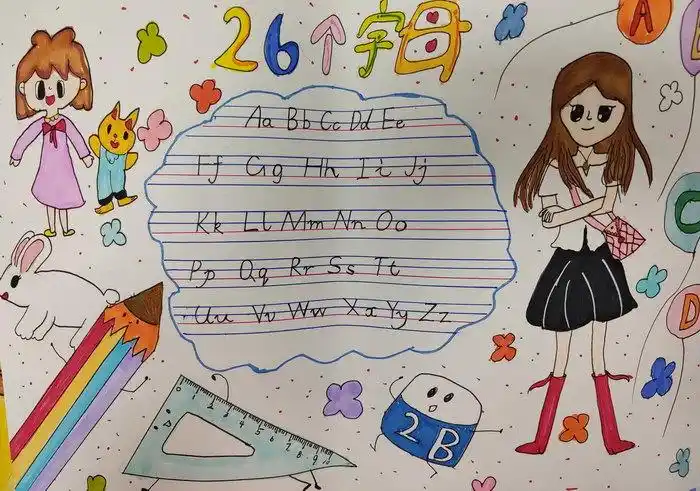 26个字母
A
B
Aa Bb Cc Dd Ee
Ff Gg Hh Ii Jj
Kk Ll Mm Nn Oo
C
Pp Qq Rr Ss Tt
Uu Vv Ww Xx Yy Zz
D
0 1 2 3 4 5 6 7 8 9
2B